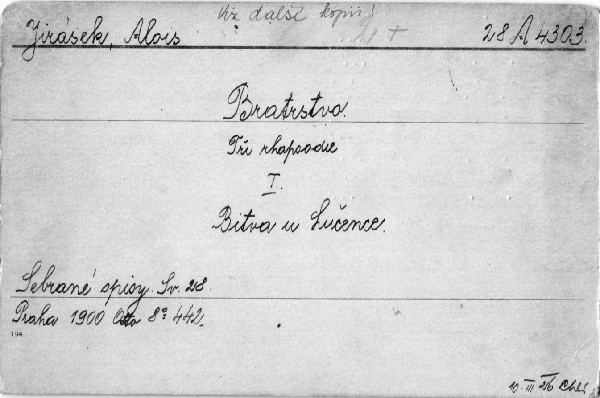 Viz další kopii!
Jirásek, Alois 28 A 4303.
Bratrstvo.
Tři rhapsodie
I.
Bitva u Lučence.
Sebrané spisy. Sv. 28.
Praha 1900 Otto 8° 442.
194
19. III 26